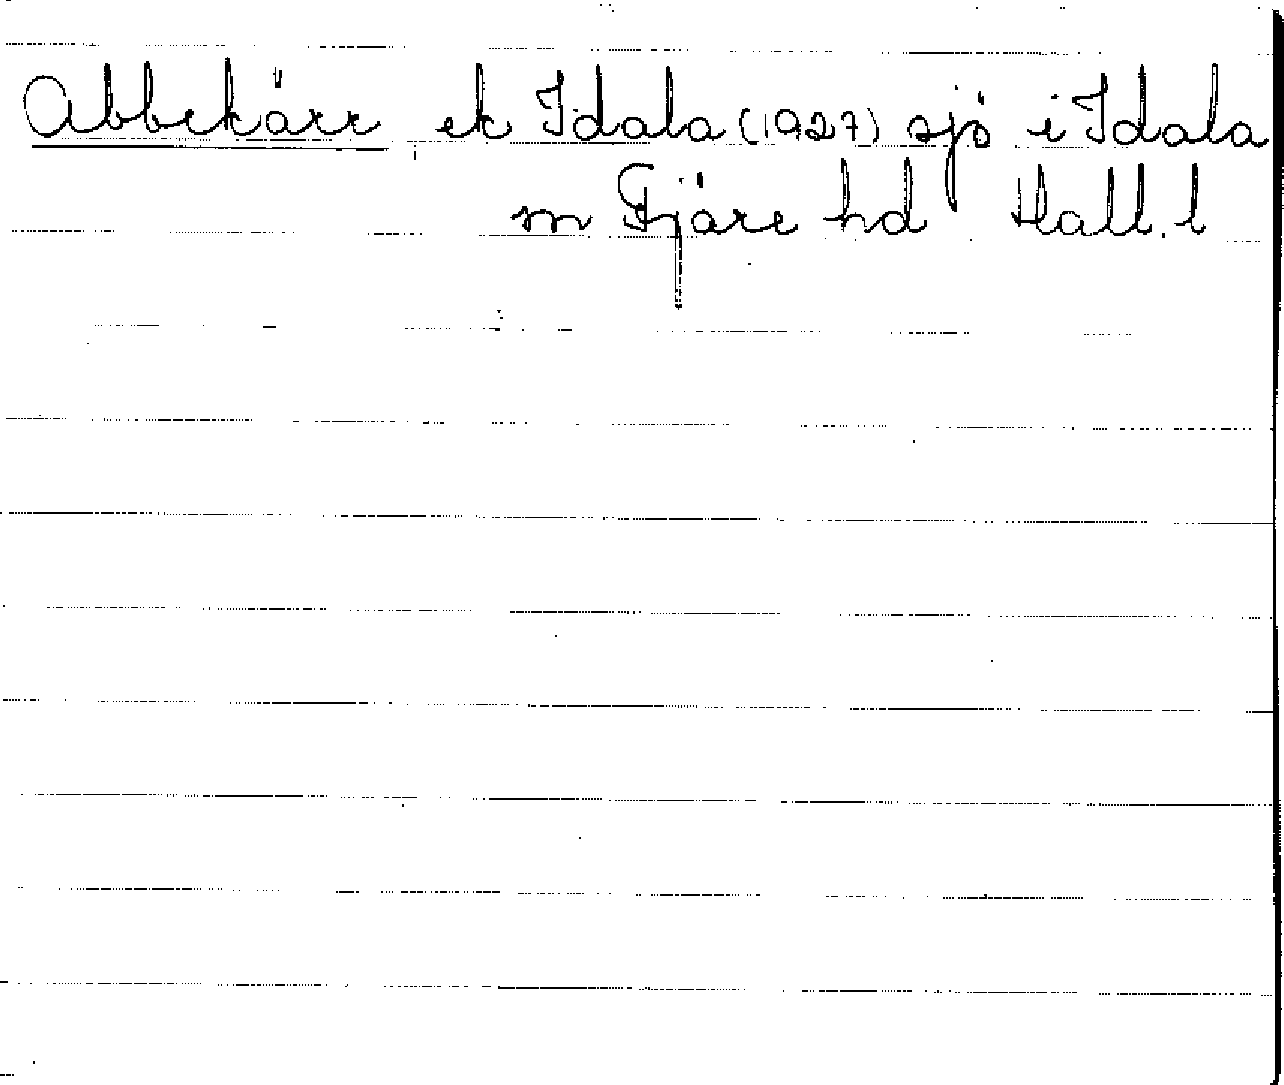 Abbekärr ek Idala (1927) sjö i Idala
sn Fjäre hd Hall. l